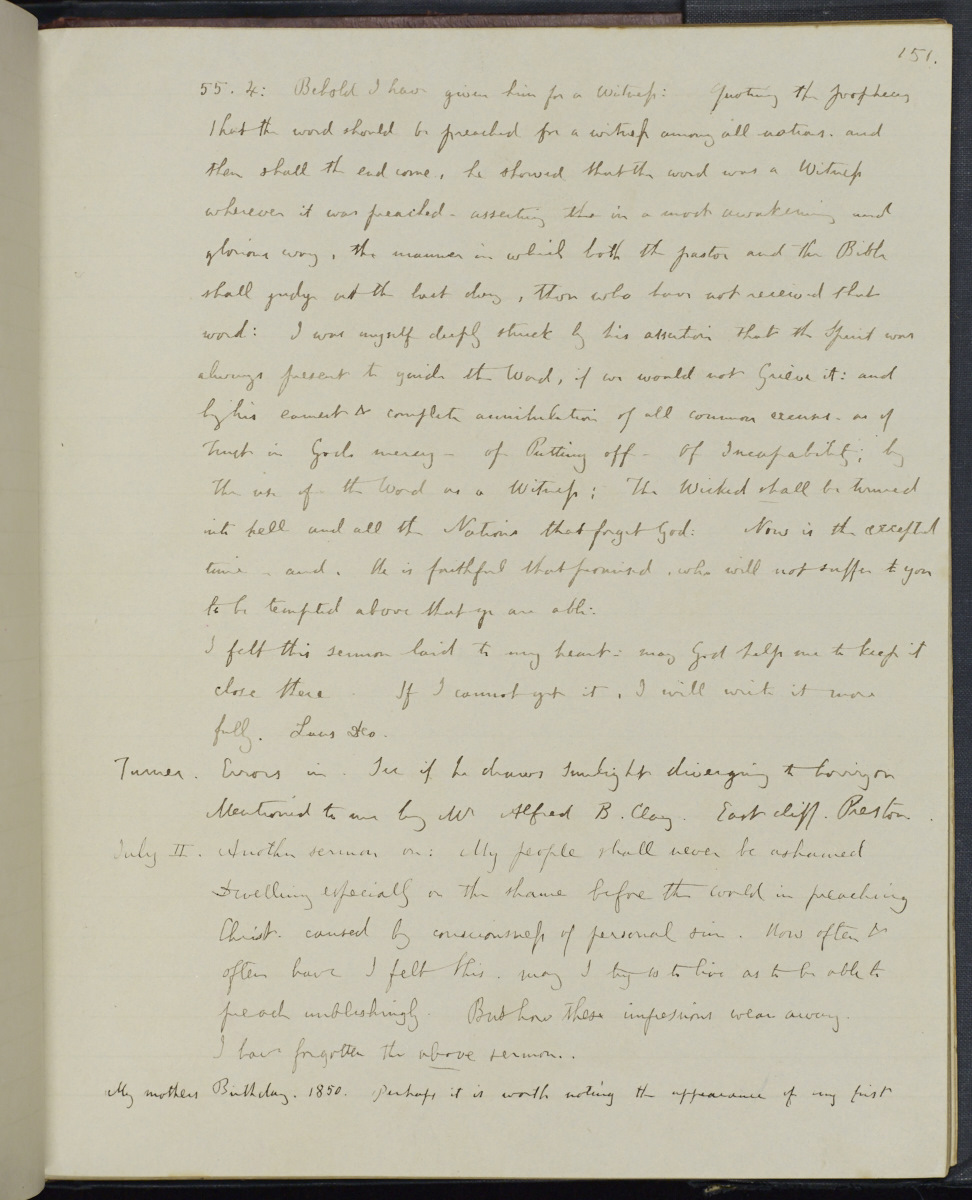 151.
55. 4: Behold I have given him for a Witness: Quoting the prophecy
that the word should be preached for a witness among all nations. and
then shall the end come, he showed that the word was a Witness
wherever it was preached - asserting too in a most awakening and
glorious way, the manner in which both the pastor and the Bible
shall judge at the last day, those who have not received that
word: I was myself deeply struck by his assertion that the Spirit was
always present to guide the Word, if we would not Grieve it: and
by his earnest & complete annihilation of all common excuses - as of
trust in Gods mercy - of Putting off - of Incapability; by
the use of the Word as a Witness; The Wicked shall be turned
into hell and all the Nations that forget God: Now is the accepted
time - and, He is faithful that promised, who will not suffer you
to be tempted above that ye are able:
I felt this sermon laid to my heart: may God help me to keep it
close there. If I cannot get it, I will write it more
fully. Laus Deo.
Turner. Errors in. See if he draws sunlight diverging to horizon
Mentioned to me by Mr Alfred B. Clay. East cliff. Preston.
July II. Another sermon on: My people shall never be ashamed
Dwelling especially on the shame before the world in preaching
Christ. caused by consciousness of personal sin. How often &
often have I felt this. may I try so to live as to be able to
preach unblushingly. But how these impressions wear away.
I have forgotten the above sermon..
My mothers Birthday. 1850. Perhaps it is worth noting the appearance of my first